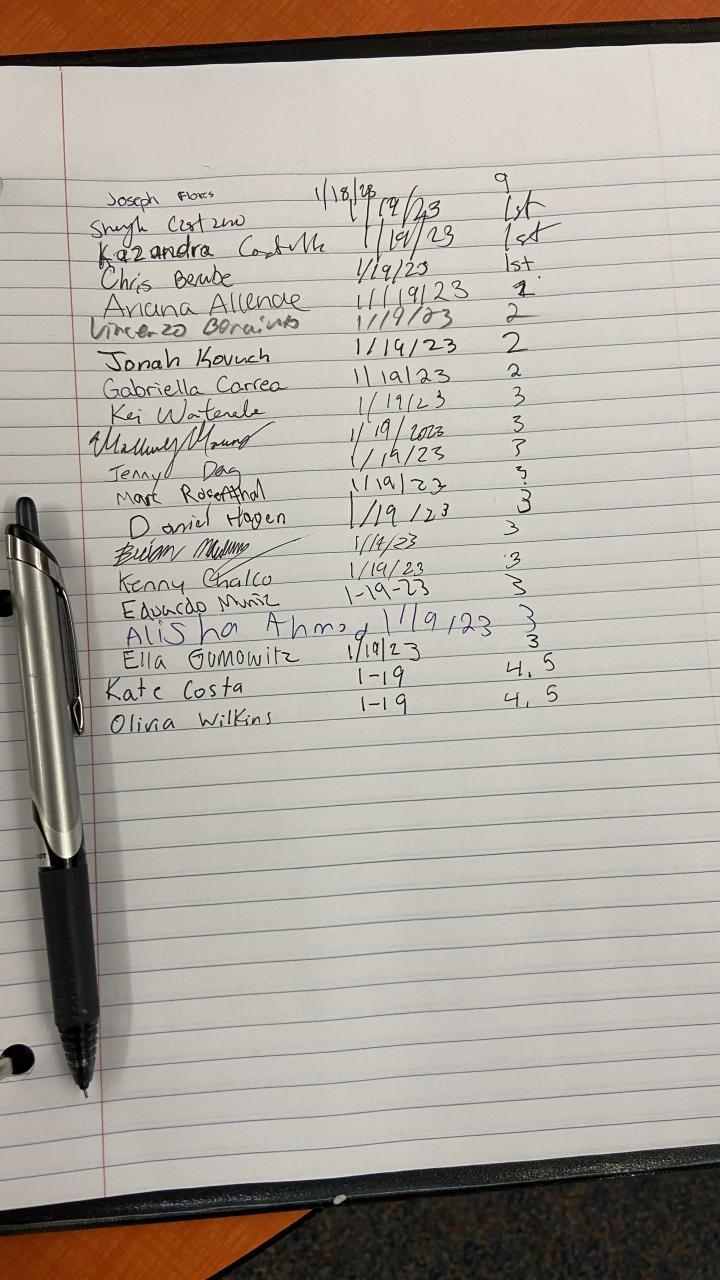 Joseph Flores 1/18/23 9
1/19/23 1st
Kazandra 1/19/23 1st
Chris Berube 1/19/23 1st
Ariana Allende 1/19/23 2
Vincenzo 1/19/23 2
Jonah Kovach 1/19/23 2
Gabriella Correa 1/19/23 2
Kei Watanabe 1/19/23 3
1/19/2023 3
Jenny 1/19/23 3
Marc Rosenthal 1/19/23 3
Daniel Hagen 1/19/23 3
1/19/23 3
Kenny Chalco 1/19/23 3
Eduardo Muñiz 1-19-23 3
Alisha Ahmed 1/19/23 3
Ella Gomowitz 1/19/23 3
Kate Costa 1-19 4.5
Olivia Wilkins 1-19 4.5